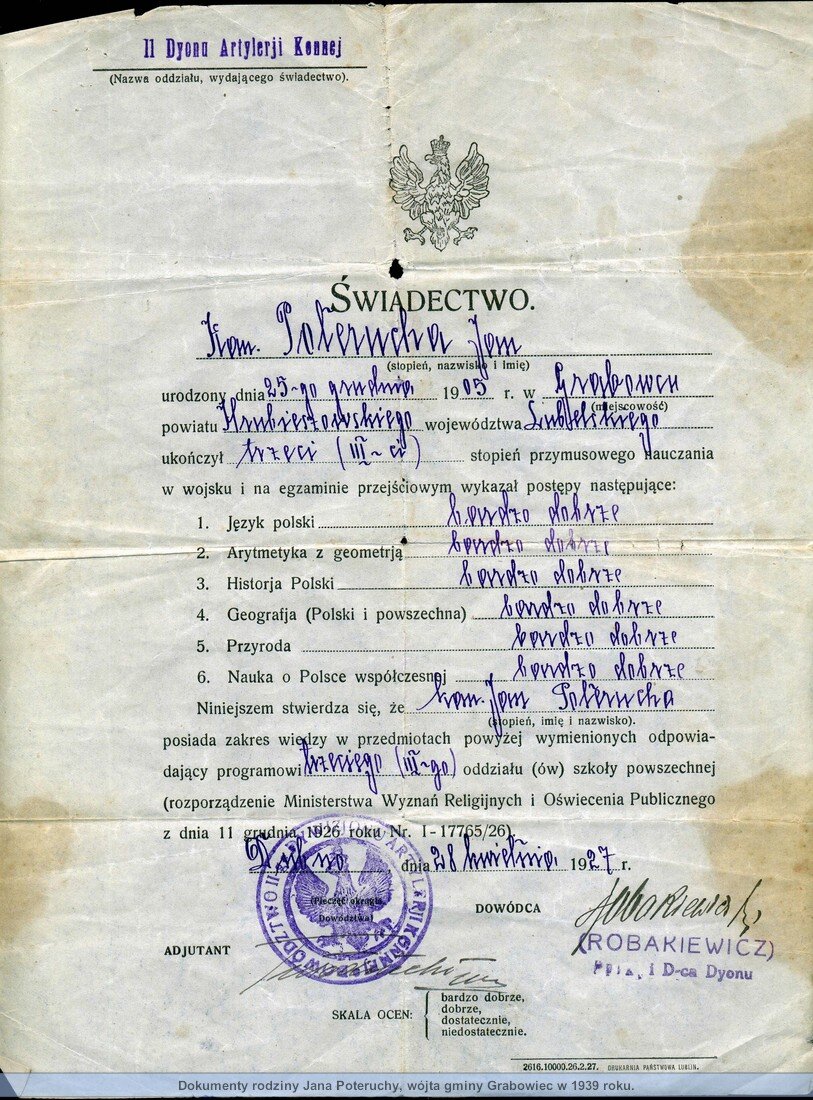 II Dyonu Artylerji Konnej
(Nazwa oddziału, wydającego świadectwo).
ŚWIADECTWO.
Kan. Poterucha Jan
(stopień, nazwisko i imię)
urodzony dnia 25-go grudnia 1905 r. w Grabowcu
(miejscowość)
powiatu Hrubieszowskiego województwa Lubelskiego
ukończył trzeci (III-ci) stopień przymusowego nauczania
w wojsku i na egzaminie przejściowym wykazał postępy następujące:
1. Język polski bardzo dobrze
2. Arytmetyka z geometrją bardzo dobrze
3. Historja Polski bardzo dobrze
4. Geografja (Polski i powszechna) bardzo dobrze
5. Przyroda bardzo dobrze
6. Nauka o Polsce współczesnej bardzo dobrze
Niniejszem stwierdza się, że kan. Jan Poterucha
(stopień, imię i nazwisko).
posiada zakres wiedzy w przedmiotach powyżej wymienionych odpowia-
dający programowi trzeciego (III-go) oddziału (ów) szkoły powszechnej
(rozporządzenie Ministerstwa Wyznań Religijnych i Oświecenia Publicznego
z dnia 11 grudnia 1926 roku Nr. I-17765/26).
Dubno dnia 28 kwietnia 1927 r.
(Pieczęć okrągła
Dowództwa)
DOWÓDCA
(ROBAKIEWICZ)
i D-ca Dyonu
ADJUTANT
SKALA OCEN:
bardzo dobrze,
dobrze,
dostatecznie,
niedostatecznie.
2616.10000.26.2.27. DRUKARNIA PAŃSTWOWA LUBLIN.
Dokumenty rodziny Jana Poteruchy, wójta gminy Grabowiec w 1939 roku.